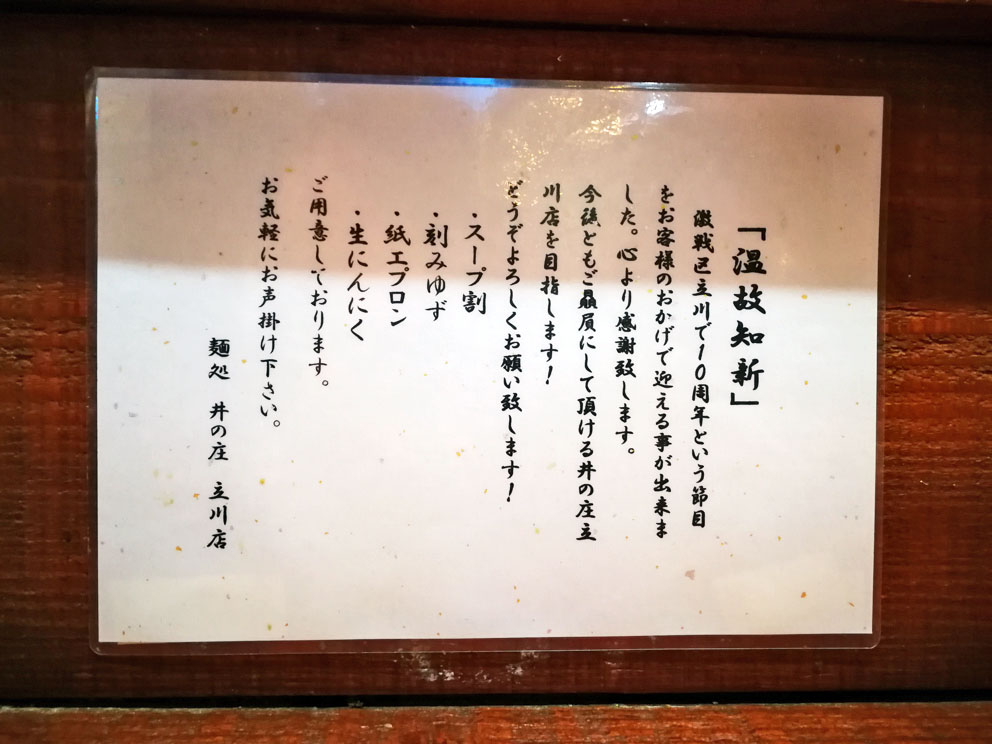 「温故知新」
激戦区立川で10周年という節目
をお客様のおかげで迎える事が出来ま
した。心より感謝致します。
今後ともご贔屓にして頂ける井の庄立
川店を目指します!
どうぞよろしくお願い致します!
・スープ割
・刻みゆず
・紙エプロン
・生にんにく
ご用意しております。
お気軽にお声掛け下さい。
麺処 井の庄 立川店